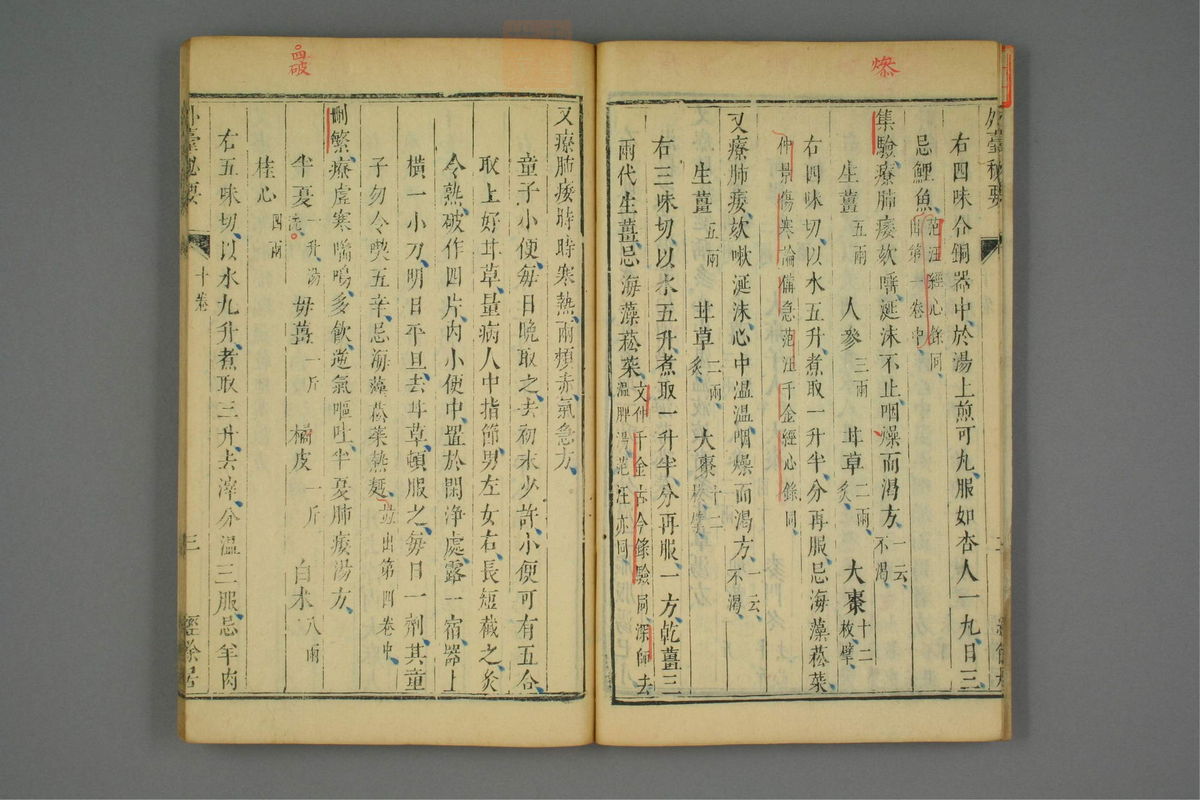 燥
外臺秘要
右四味合銅器中於湯上煎可丸服如杏人一丸日三
忌鯉魚范汪經心錄同
出第一卷中
集驗療肺痿欬嗽涎沫不止咽燥而渴方一云不渴
生薑五兩 人參三兩 甘草二兩炙 大棗十二枚擘
右四味切以水五升煮取一升半分再服忌海藻菘菜
仲景傷寒論備急范汪千金經心錄同
又療肺痿欬嗽涎沫心中溫溫咽燥而渴方一云不渴
生薑五兩 甘草二兩炙 大棗十二枚擘
右三味切以水五升煮取一升半分再服一方乾薑三
兩代生薑忌海藻菘菜文仲千金古今錄驗同深師去
溫脾湯范汪亦同
四破
又療肺痿時時寒熱兩頰赤氣急方
童子小便每日晚取之去初末少許小便可有五合
取上好甘草量病人中指節男左女右長短截之炙
令熟破作四片內小便中置於閑淨處露一宿器上
橫一小刀明日平旦去甘草頓服之每日一劑其童
子勿令喫五辛忌海藻菘菜熱麵並出第四卷中
刪繁療虛寒喘鳴多飲逆氣嘔吐半夏肺痿湯方
半夏一升湯洗 母薑一斤 橘皮一斤 白朮八兩
桂心四兩
右五味切以水九升煮取三升去滓分溫三服忌羊肉
外臺秘要
十卷
三
經餘居